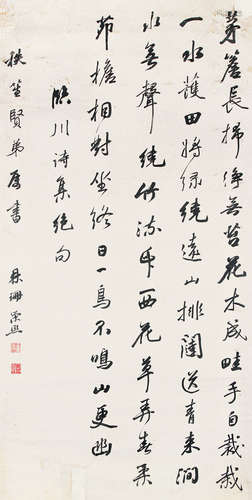 茅簷長掃淨無苔花木成畦手自栽栽
一水護田將綠繞遠山排闥送青來澗
水無聲繞竹流竹西花草弄春柔
茆檐相對坐終日一鳥不鳴山更幽
臨川詩集絕句
笙賢弟屬書